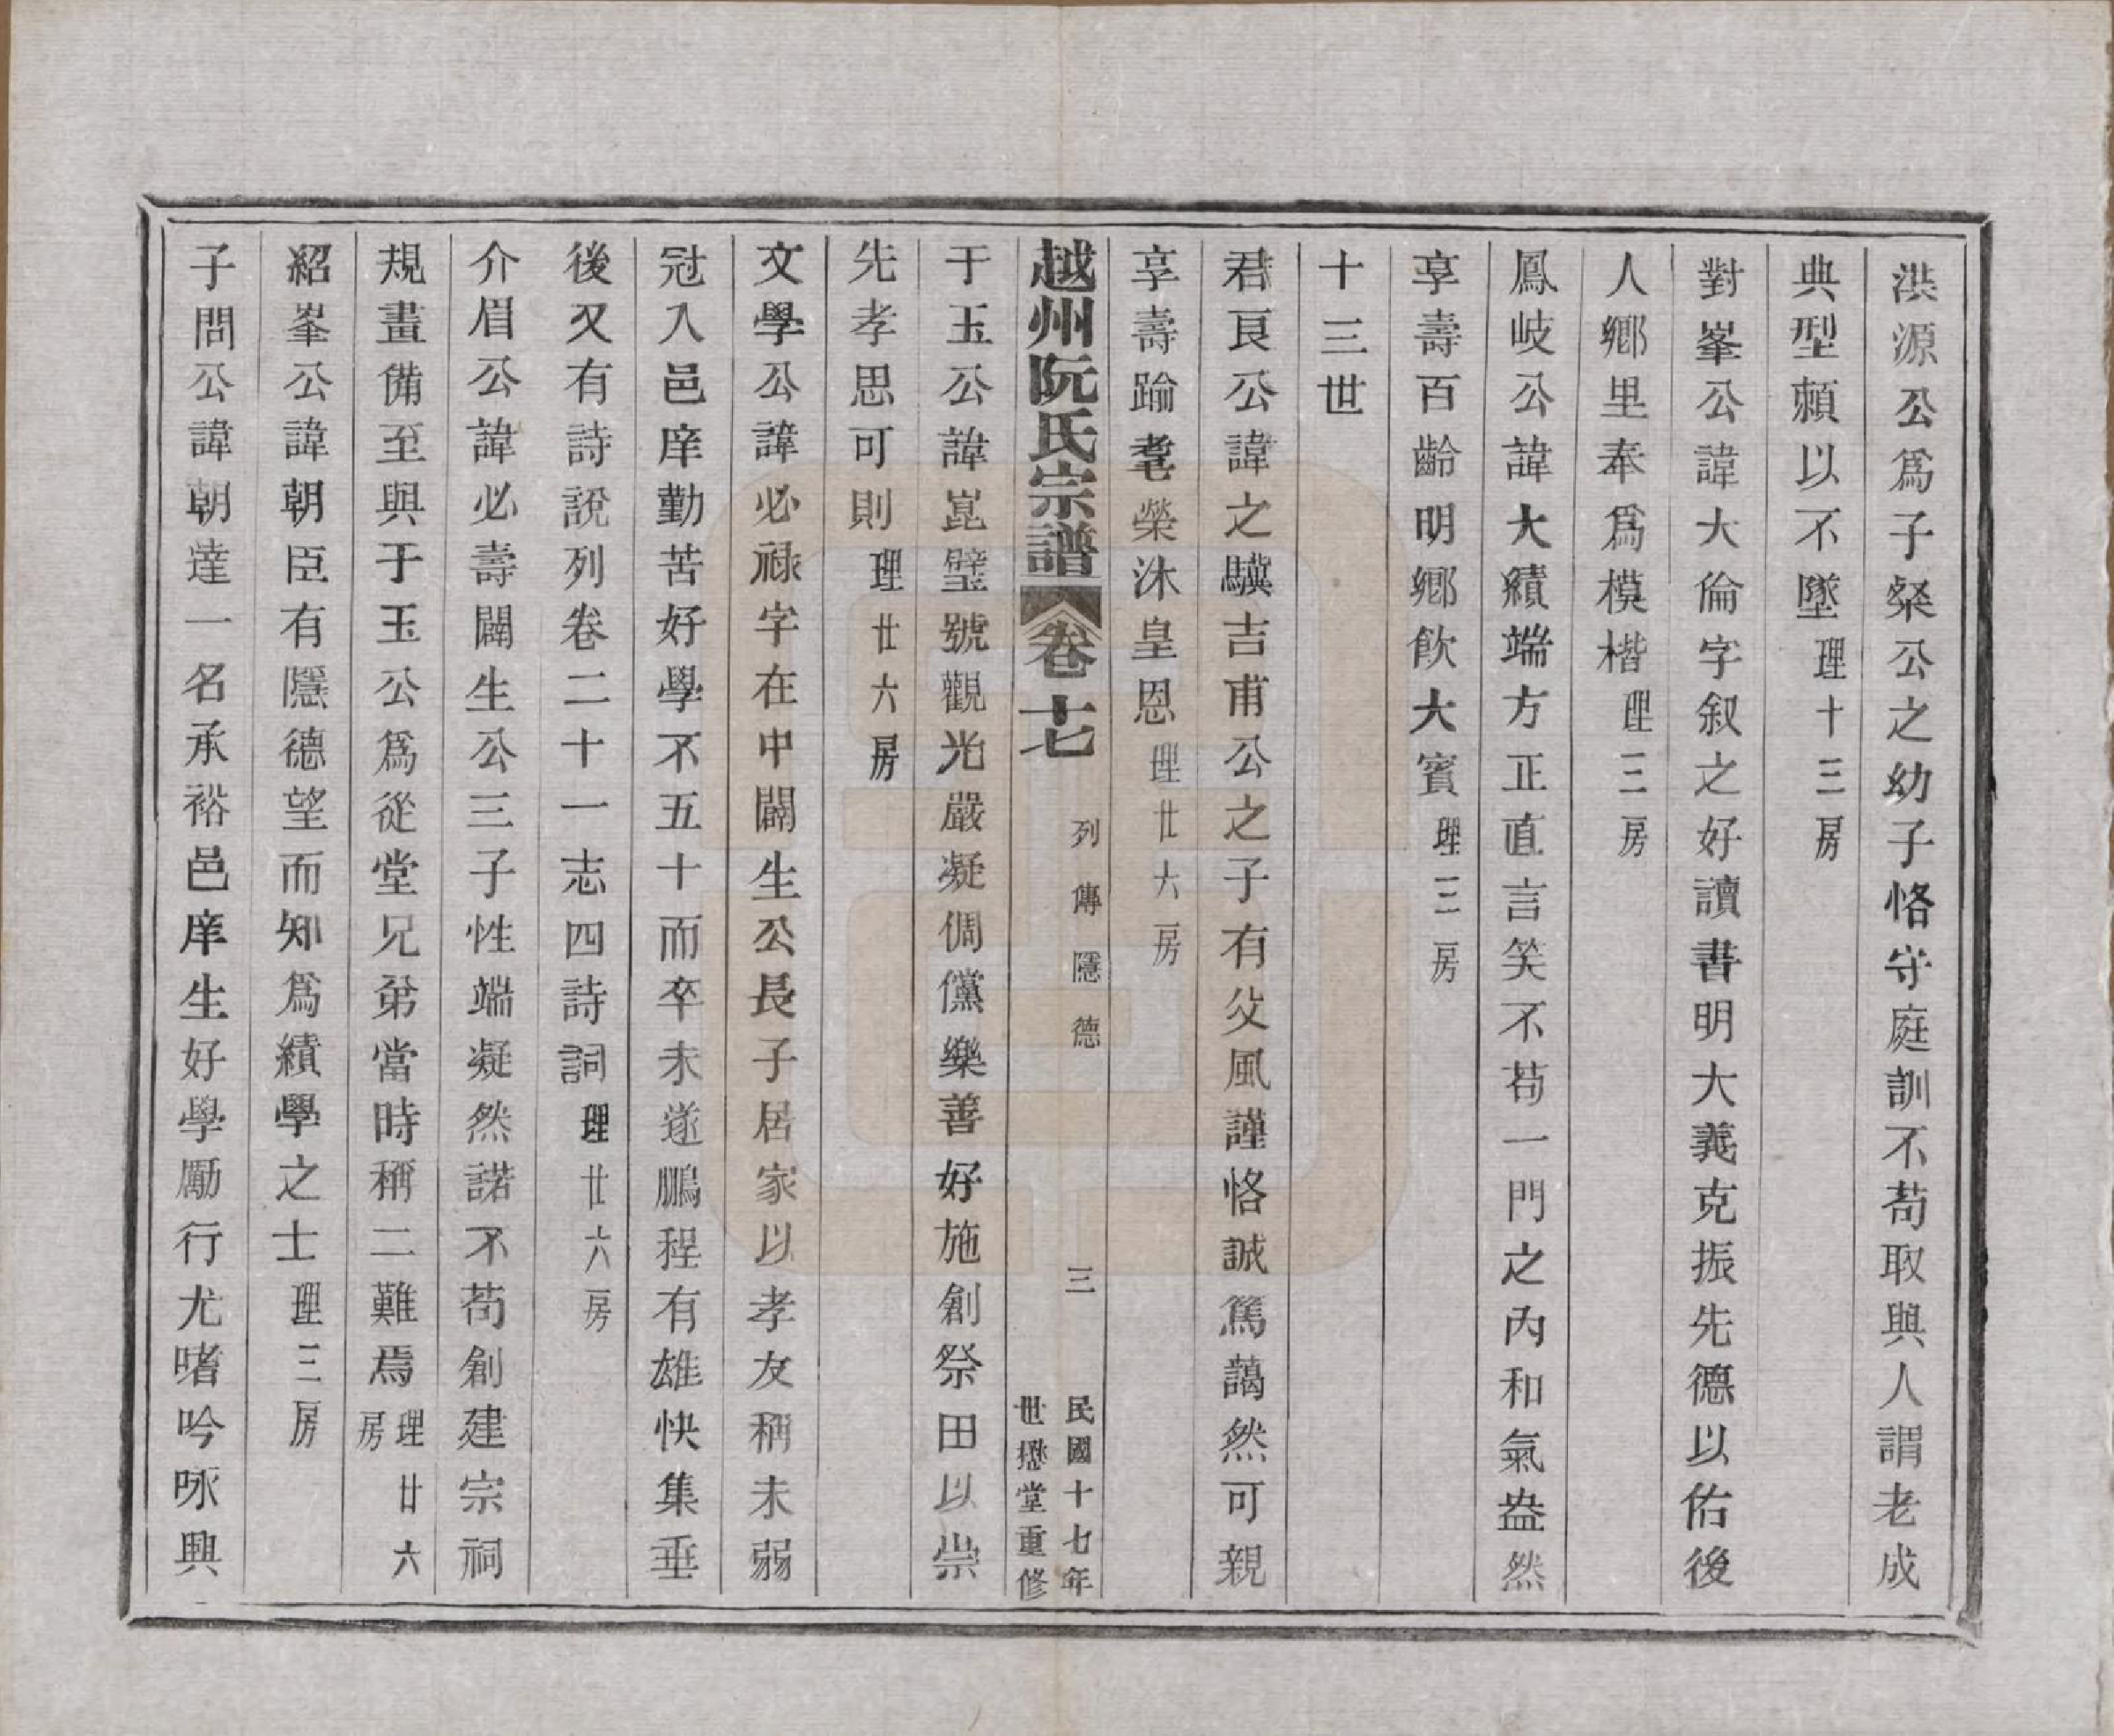 洪源公爲子粲公之幼子恪守庭訓不苟取與人謂老成
典型頼以不墜理十三房
對峯公諱大倫字叙之好讀書明大義克振先德以佑後
人鄉里奉爲模楷理三房
鳳岐公諱大續端方正直言笑不苟一門之內和氣盎然
享壽百齡明鄉飲大賓理三房
十三世
君良公諱之驥吉甫公之子有父風謹恪誠篤藹然可親
享壽踰耄榮沐皇恩理廿六房
越州阮氏宗譜 卷十七 列傳隱德 三 民國十七年
世懋堂重修
于玉公諱崑璧號觀光嚴凝倜儻樂善好施創祭田以崇
先孝思可則理廿六房
文學公諱必祿字在中闢生公長子居家以孝友稱未弱
冠入邑庠勤苦好學不五十而卒未遂鵬程有雄快集垂
後又有詩說列卷二十一志四詩詞理廿六房
介眉公諱必壽闢生公三子性端凝然諾不苟創建宗祠
規畫備至與于玉公爲從堂兄弟當時稱二難焉理廿六
房
紹峯公諱朝臣有隱德望而知爲績學之士理三房
子問公諱朝達一名承裕邑庠生好學勵行尤嗜吟咏興